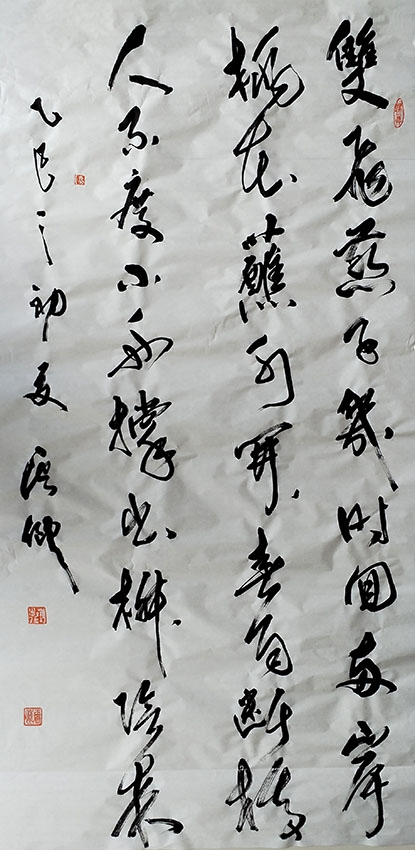 雙飛燕子幾时回夾岸
桃花蘸水開春雨斷橋
人不度小舟撑出柳陰来
乙巳之初夏